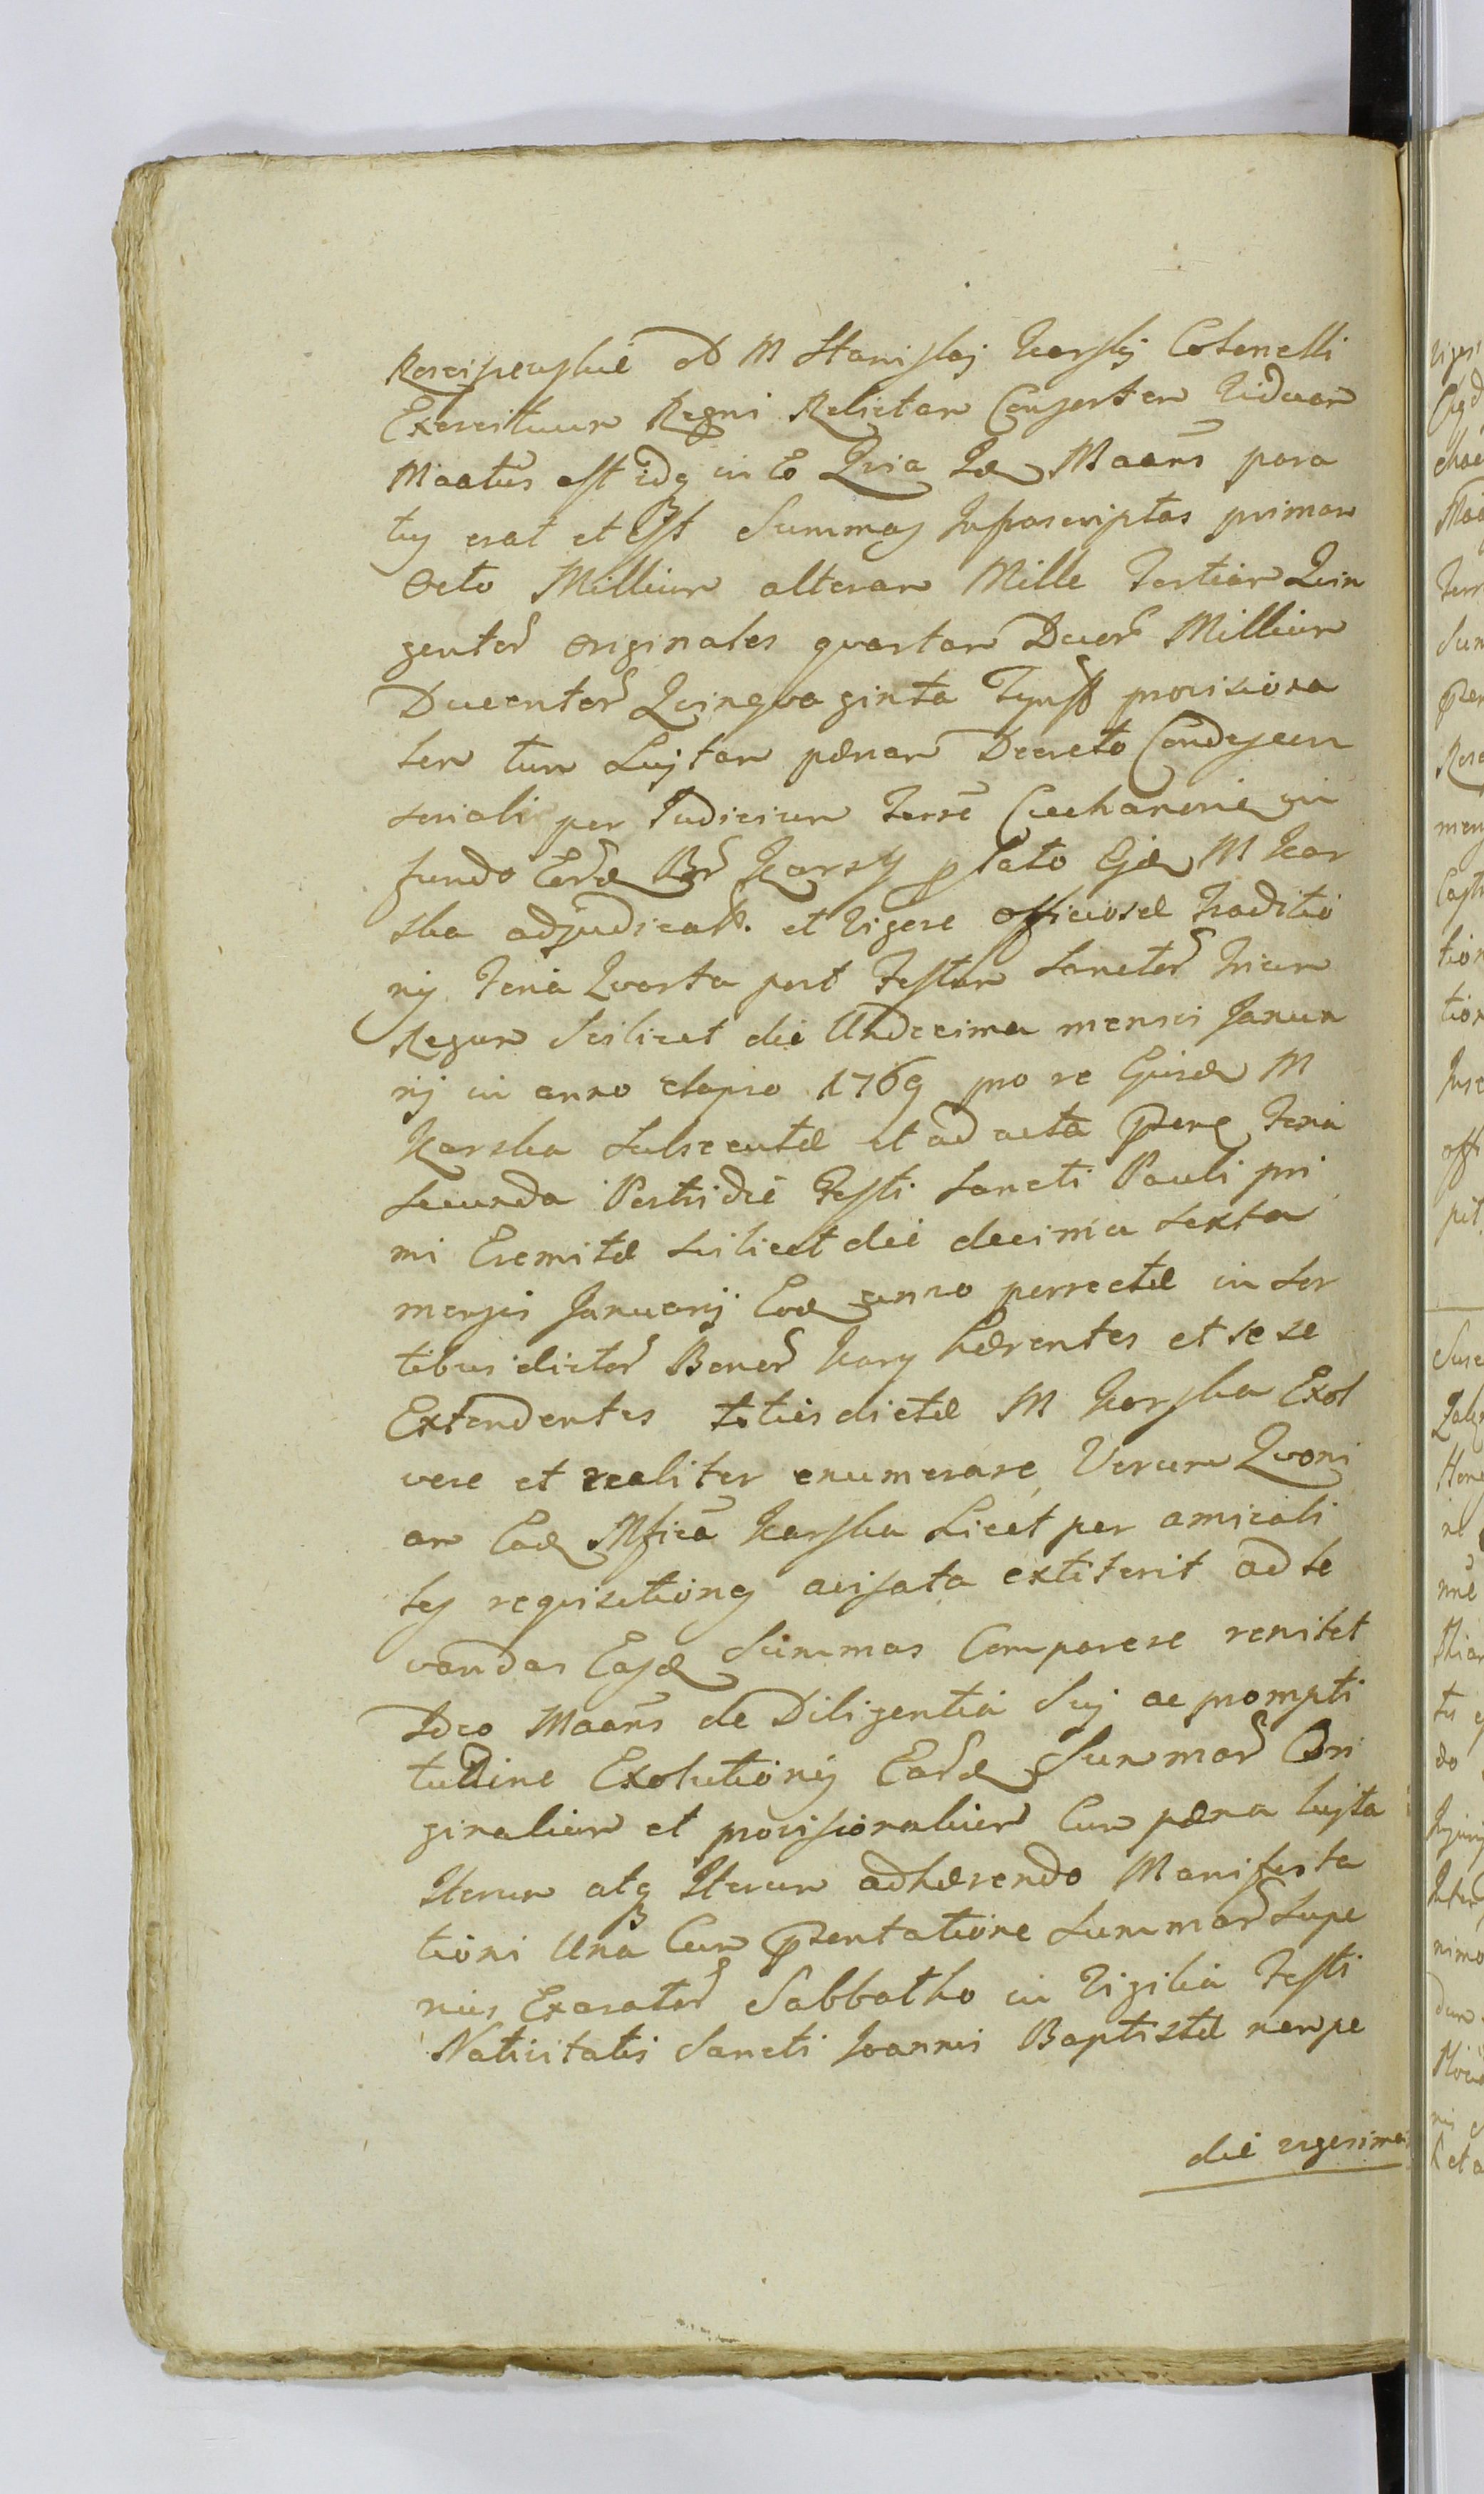 olim M Stanislaj Karskj Colonelli
Exercituum Regni Relictam Consortem Viduam
Maatus est idq in Eo Quia Idē Maans para
tus erat et est Summas Infrascriptas primam
Octo Millium alteram Mille Tertiam Quin
gentor originales quartam Duor Millium
Ducentor Quinquaginta Tynff provisiona
lem tum Luitam pænam Decreto Condescen
soriali per Judicium Terre Ciechanovie in
fundo Eord Bor Karsy plato M Kar
ska adjudicat. et Vigore officiosæ Traditio
nis Feria Quarta post Festum Sanctor Trium
Regum Scilicet die Undecima mensis Janua
rij in anno elapso 1769 pro re M
Karska Subsecutæ et ad acta Feria
Secunda Postridie Festi Sancti Pauli pri
mi Eremitæ scilicet die decima sexta
mensis Januarij Eod anno porrectæ in Sor
tibus dictor Bonor Karsy hærentes et sese
Extendentes toties dictæ M Karska Exol
vere et realiter enumerare, Verum Quoni
am Ead Mfica Karska Licet per amicabi
les requisitiones avisata extiterit ad le
vandas Easd Summas Comparere renitet
Ideo Maans de Diligentia Sui ac prompti
tudine Exolutionis Eard Summar Ori
ginalium et provisionalium Cum pæna luita
Iterum atq Iterum adhærendo Manifesta
tioni Una Cum Pzentatione Summar Supe
rius Exarator Sabbatho in Vigilia Festi
Nativitatis Sancti Joannis Baptistæ nempe
die vigesima